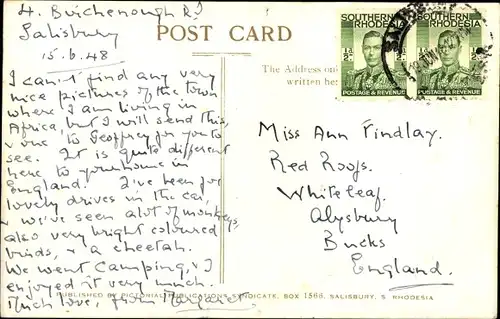 4. Birchenough Rd
Salisbury
15.6.48
I can't find any very
nice pictures of the town
where I am living in
Africa, but I will send this,
& one to Geoffrey for you to
see. It is quite different
here to your home in
England. I've been for
lovely drives in the car,
& we've seen alot of monkeys
also very bright coloured
birds, & a cheetah.
We went camping, & I
enjoyed it very much.
Much love, from Margaret.
POST CARD
The Address on
written he
SOUTHERN RHODESIA
½D
POSTAGE & REVENUE
SOUTHERN RHODESIA
½D
POSTAGE & REVENUE
Miss Ann Findlay.
Red Roofs.
Whiteleaf.
Alysbury
Bucks
England.
PUBLISHED BY PICTORIAL PUBLICATIONS SYNDICATE, BOX 1566, SALISBURY, S. RHODESIA